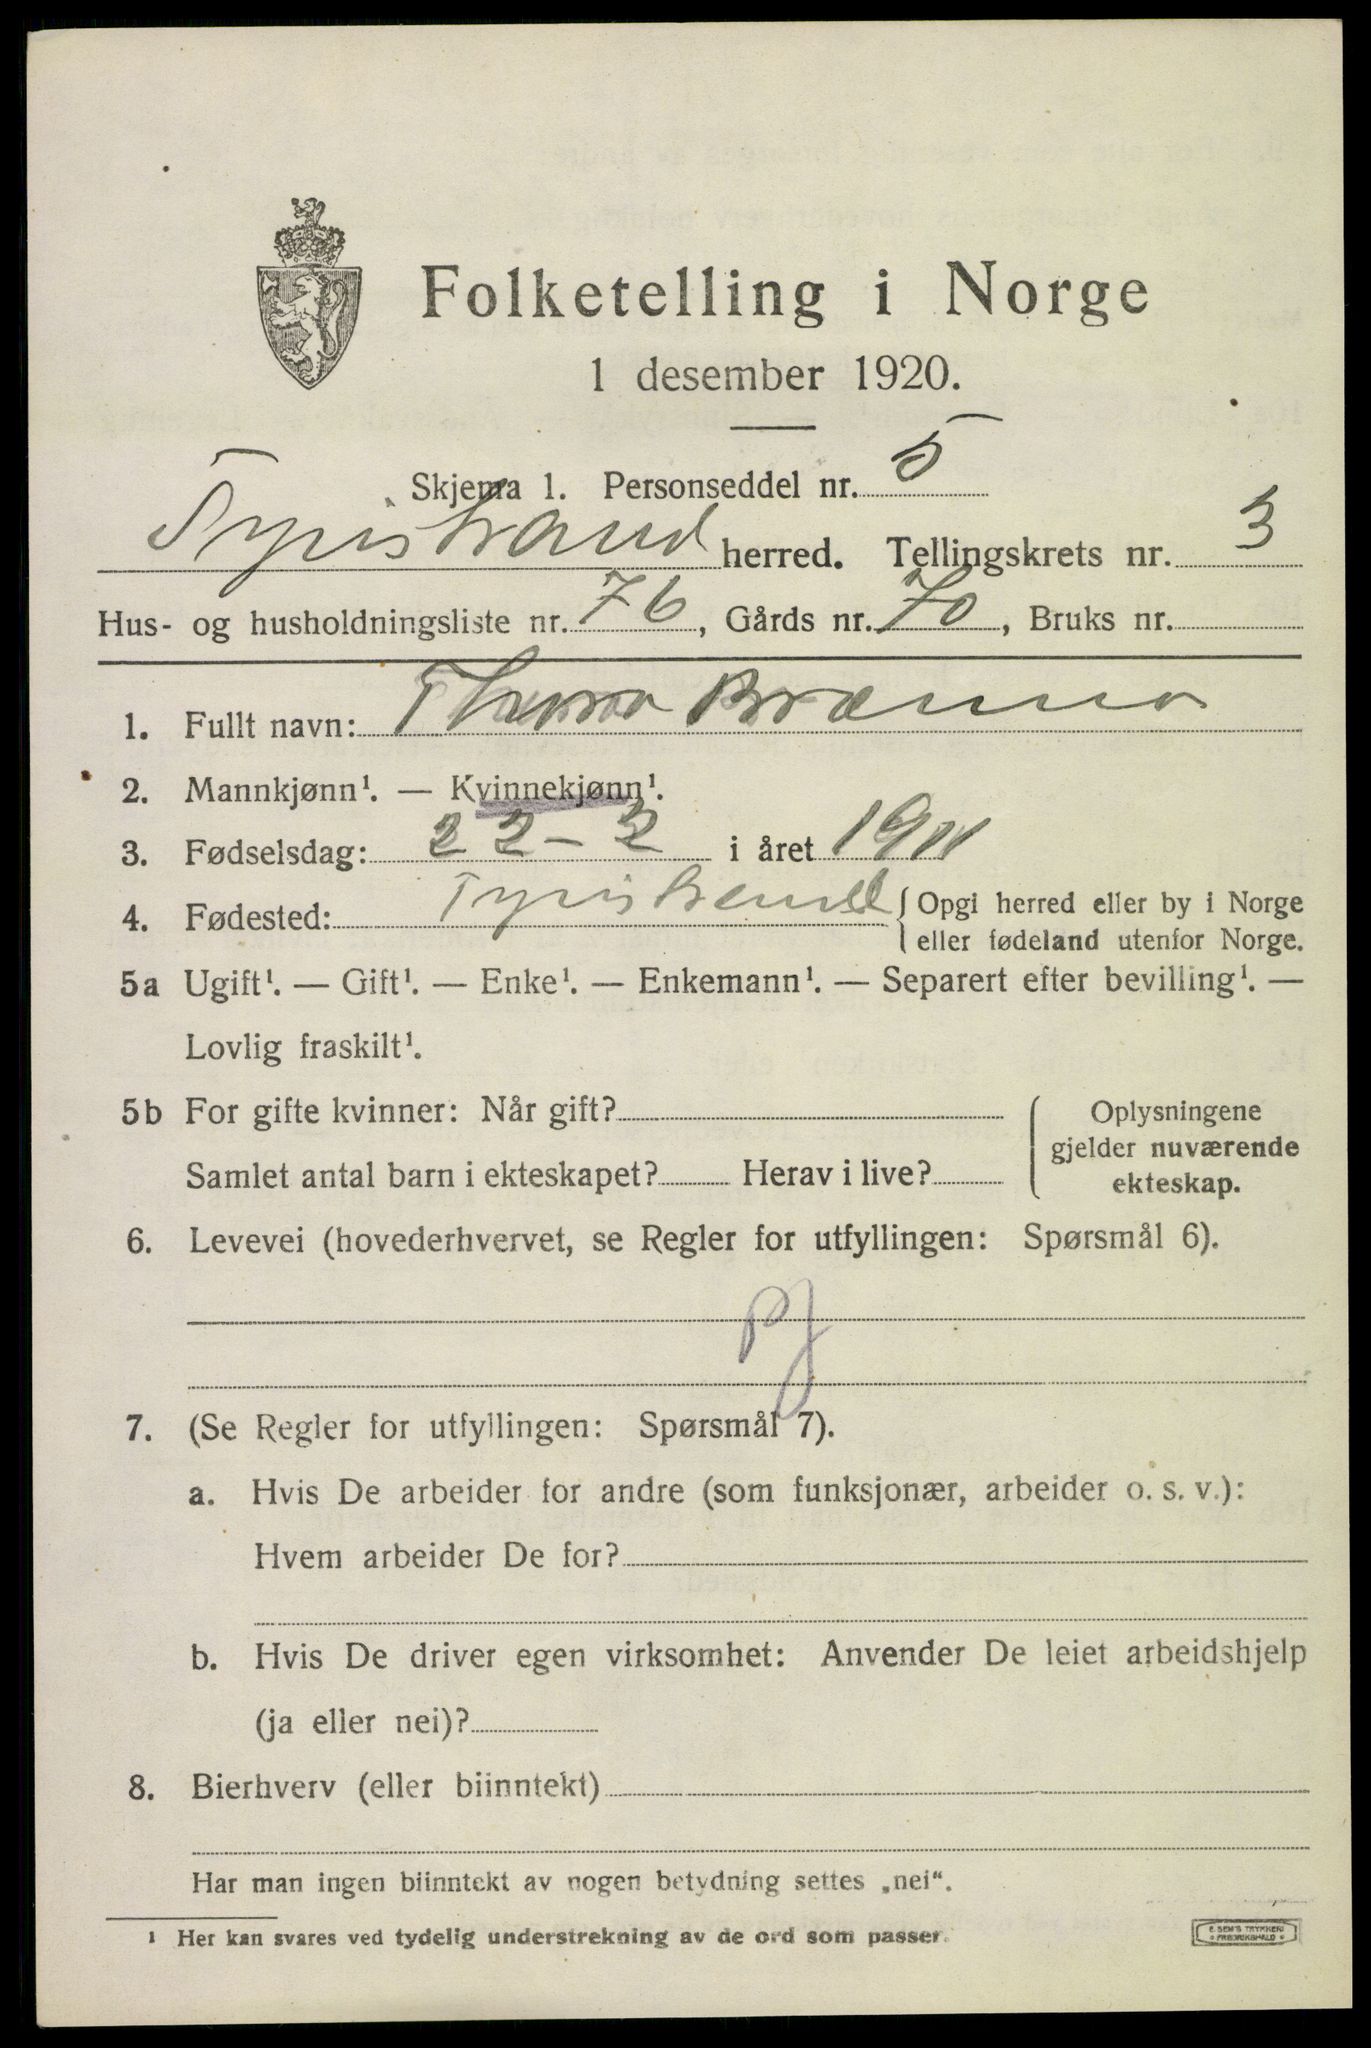 Folketelling i Norge
1 desember 1920.
Skjema 1. Personseddel nr. 5
Tyristrand herred. Tellingskrets nr. 3
Hus- og husholdningsliste nr. 76, Gårds nr. 70, Bruks nr.
1. Fullt navn: Thora Brænna
2. Mannkjønn¹. — Kvinnekjønn¹.
3. Fødselsdag: 22-2 i året 1911
4. Fødested: Tyristrand { Opgi herred eller by i Norge
eller fødeland utenfor Norge.
5a Ugift¹. — Gift¹. — Enke¹. — Enkemann¹. — Separert efter bevilling¹. —
Lovlig fraskilt¹.
5b For gifte kvinner: Når gift? { Oplysningene
gjelder nuværende
Samlet antal barn i ekteskapet? Herav i live? ekteskap.
6. Levevei (hovederhvervet, se Regler for utfyllingen: Spørsmål 6).
7. (Se Regler for utfyllingen: Spørsmål 7).
a. Hvis De arbeider for andre (som funksjonær, arbeider o. s. v.):
Hvem arbeider De for?
b. Hvis De driver egen virksomhet: Anvender De leiet arbeidshjelp
(ja eller nei)?
8. Bierhverv (eller biinntekt)
Har man ingen biinntekt av nogen betydning settes „nei“.
¹ Her kan svares ved tydelig understrekning av de ord som passer.
E. SEM'S TRYKKERI
FREDRIKSHALD